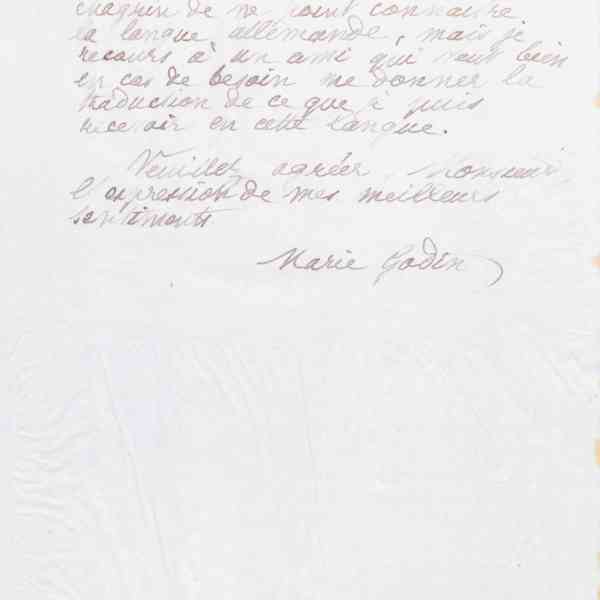 chagrin de ne point connaitre
la langue allemande, mais je
recours à un ami qui veut bien
en cas de besoin me donner la
traduction de ce que je puis
recevoir en cette langue.
Veuillez agréer, Monsieur,
l'expression de mes meilleurs
sentiments
Marie Godin